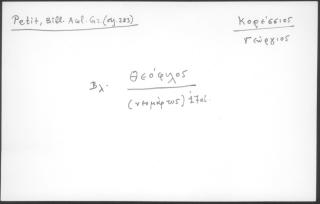 Petit, Bibl. Acol. Gr. (σχ. 283)
Κορέσσιος
Γεώργιος
Βλ. Θεόφιλος
(νεομάρτυς) 17ος